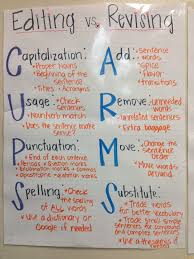 Editing vs. Revising
Capitalization:
• Proper nouns
• Beginning of the sentence
• Titles • Acronyms
Usage: • Check sentences
• Noun/verb match
• Does the sentence make sense?
Punctuation:
• End of each sentence
• Periods • Quotation marks
• Commas
• Question marks
Spelling: • Check the spelling of ALL words
• Use a dictionary or Google if needed
Add: • Sentences
• words
• Spice
• Flavor
• Transitions
Remove: • Unneeded words
• Unrelated sentences
• Extra baggage
Move: • Change word placement
• Move words around
Substitute:
• Trade words for better vocabulary
• Trade small simple sentences for compound and complex sentences
• Use a thesaurus if